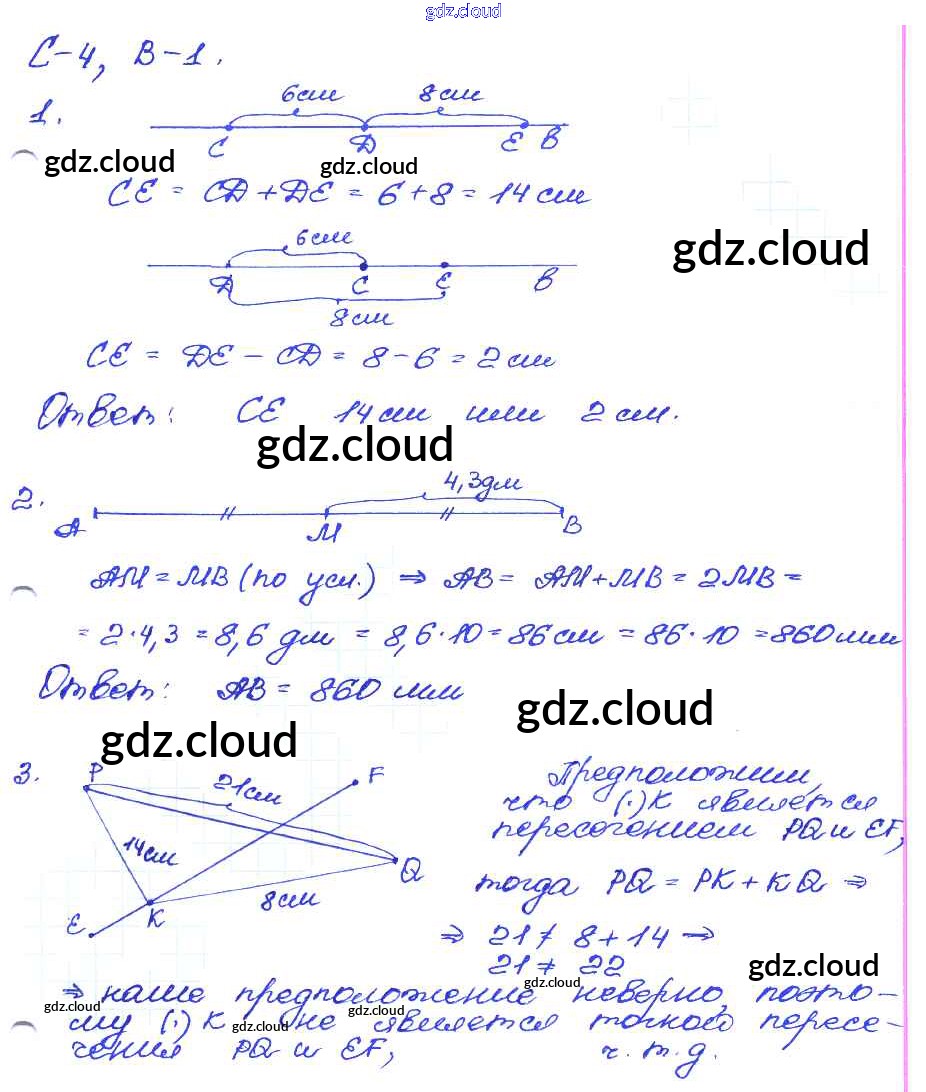 gdz.cloud
С-4, В-1.
1.
6см 8см
C D E B
gdz.cloud gdz.cloud
CE = CD + DE = 6 + 8 = 14 см
6см
gdz.cloud
D C E B
8см
CE = DE - CD = 8 - 6 = 2 см
Ответ: CE 14 см или 2 см.
gdz.cloud
2.
4,3дм
A M B
AM = MB (по усл.) ⇒ AB = AM + MB = 2MB =
= 2·4,3 = 8,6 дм = 8,6·10 = 86 см = 86·10 = 860 мм
Ответ: AB = 860 мм
gdz.cloud
gdz.cloud
3.
P 21см F
14см
Q
8см
E K
Предположим,
что (·)K является
пересечением PQ и EF,
тогда PQ = PK + KQ ⇒
⇒ 21 ≠ 8 + 14 ⇒
21 ≠ 22
gdz.cloud
gdz.cloud
⇒ наше предположение неверно, поэто-
gdz.cloud gdz.cloud
му (·) K не является точкой пересе-
gdz.cloud gdz.cloud
чения PQ и EF, ч.т.д.